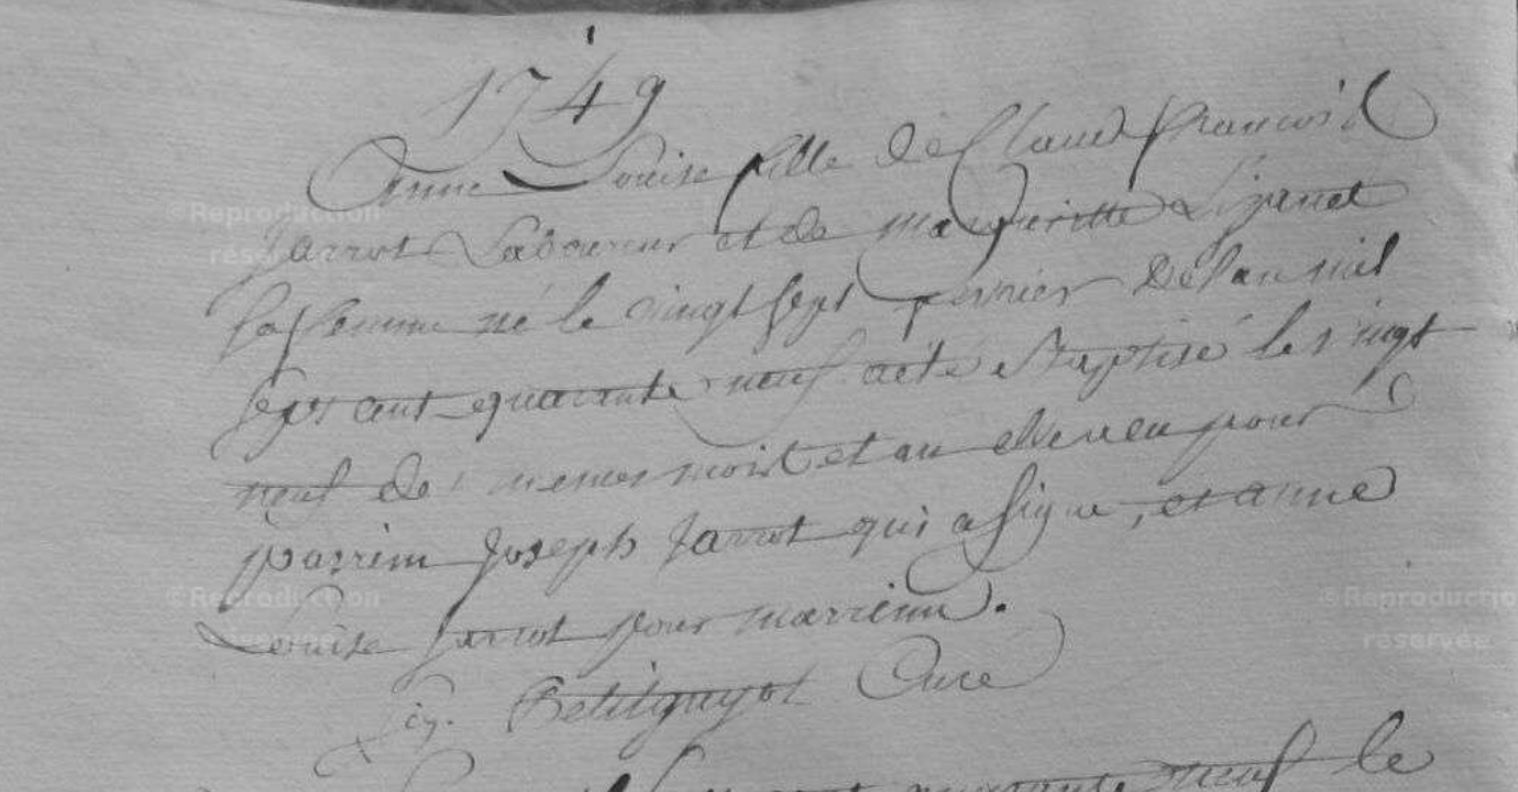 1749
Anne Louise fille de Claud françois
Jarrot Laboureur et de Margueritte Lizanet
sa femme né le vingt sept fevrier de lan mil
sept cent quarante neuf aété Baptisé le vingt
neuf de memes mois et an elle reçu pour
parrein Joseph Jarrot qui a signe, et anne
Louise Jarrot pour marreinne.
Sig. Petitguyot Curé
quarante neuf le
©Reproduction
réservée
©Reproduction
réservée
©Reproductio
réservée